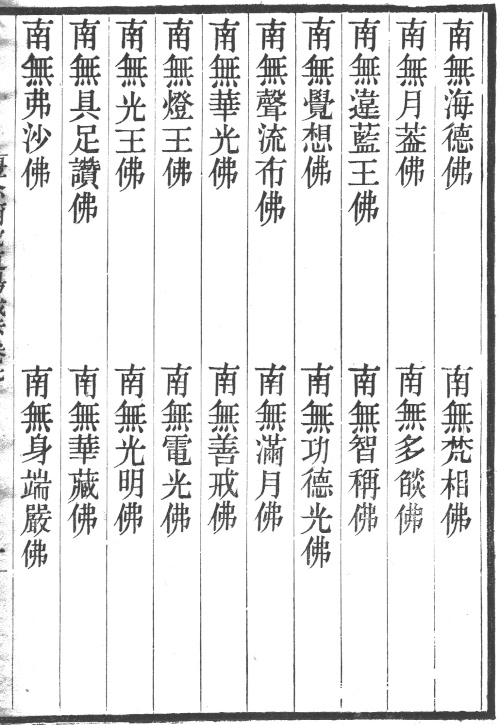 南無海德佛　南無梵相佛
南無月葢佛　南無多燄佛
南無違藍王佛　南無智稱佛
南無覺想佛　南無功德光佛
南無聲流布佛　南無滿月佛
南無華光佛　南無善戒佛
南無燈王佛　南無電光佛
南無光王佛　南無光明佛
南無具足讚佛　南無華藏佛
南無弗沙佛　南無身端嚴佛